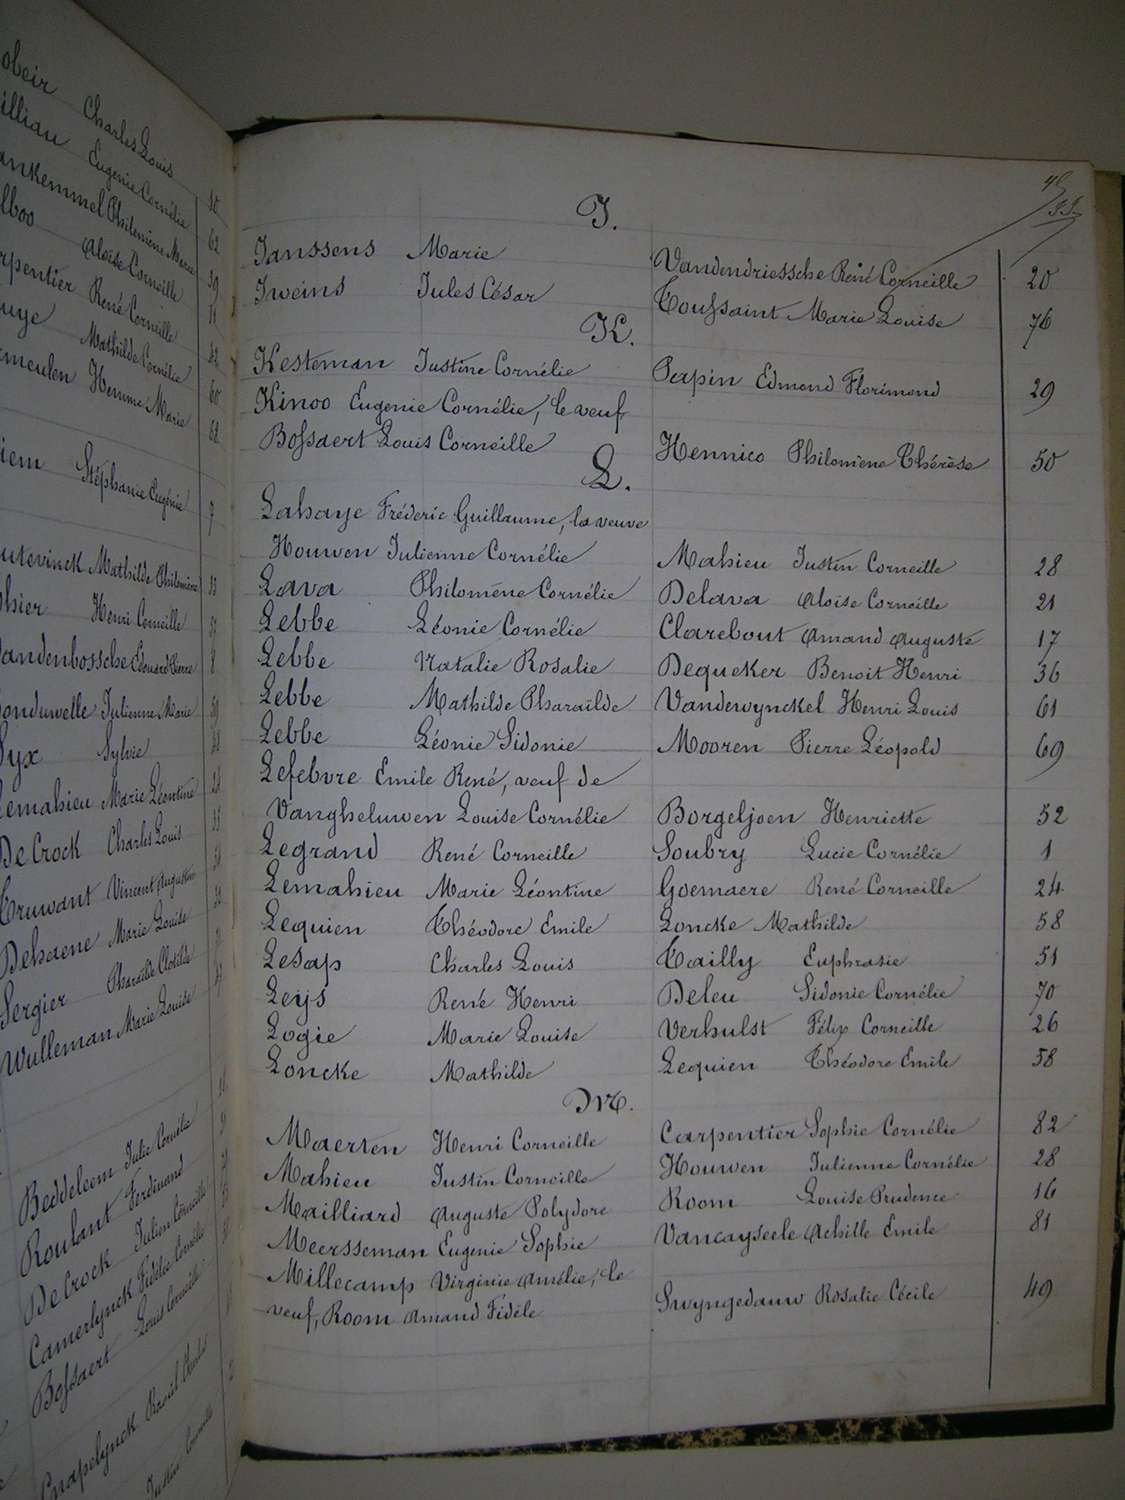 obeir Charles Louis 10
illiau Eugenie Cornélie 62
ankemmel Philomène Marie 39
lboo Aloïse Corneille 11
rpentier René Corneille 42
uye Mathilde Cornélie 60
meulen Hemma Marie 62
iem Stéphanie Eugénie 7
utevinck Mathilde Philomène 33
phier Henri Corneille
andenbossche Edouard Pierre 8
onduwelle Julienne Marie
Syx Sylvie
Lemahieu Marie Léontine
De Crock Charles Louis
Cruwant Vincent Augustin
Dehaene Marie Louise
Sergier Pharaïlde Clotilde
Wulleman Marie Louise
Beddeleem Julie Cornélie
Roulant Ferdinand
De Crock Julien Corneille
Camerlynck Fidélie Cornélie
Boſsaert Louis Corneille
Cnapelynck Raoul Charles
Justin Corneille
J.
Janssens Marie Vandendriessche René Corneille 20
Iweins Jules César Touſsaint Marie Louise 76
K.
Kesteman Justine Cornélie Perpin Edmond Florimond 29
Kinoo Eugenie Cornélie, le veuf
Boſsaert Louis Corneille Hennico Philomène Thérèse 50
L.
Lahaye Fréderic Guillaume, la veuve
Houwen Julienne Cornélie Mahieu Justin Corneille 28
Lava Philomène Cornélie Delava Aloïse Corneille 21
Lebbe Léonie Cornélie Clarebout Amand Auguste 17
Lebbe Natalie Rosalie Dequeker Benoit Henri 36
Lebbe Mathilde Pharaïlde Vandewynckel Henri Louis 61
Lebbe Léonie Sidonie Mooren Pierre Léopold 69
Lefebvre Emile René, veuf de
Vangheluwen Louise Cornélie Borgeljoen Henriette 52
Legrand René Corneille Soubry Lucie Cornélie 1
Lemahieu Marie Léontine Goemaere René Corneille 24
Lequien Théodore Emile Loncke Mathilde 58
Lesap Charles Louis Tailly Euphrasie 51
Leys René Henri Deleu Sidonie Cornélie 70
Logie Marie Louise Verhulst Félix Corneille 26
Loncke Mathilde Lequien Théodore Emile 58
M.
Maerten Henri Corneille Carpentier Sophie Cornélie 82
Mahieu Justin Corneille Houwen Julienne Cornélie 28
Mailliard Auguste Polydore Room Louise Prudence 16
Meersseman Eugenie Sophie Vancayseele Achille Emile 81
Millecamp Virginie Amélie, le
veuf, Room Amand Fidèle Swyngedauw Rosalie Cécile 49